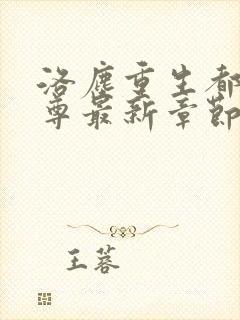 洛塵重生都
尊最新章節
王蓉